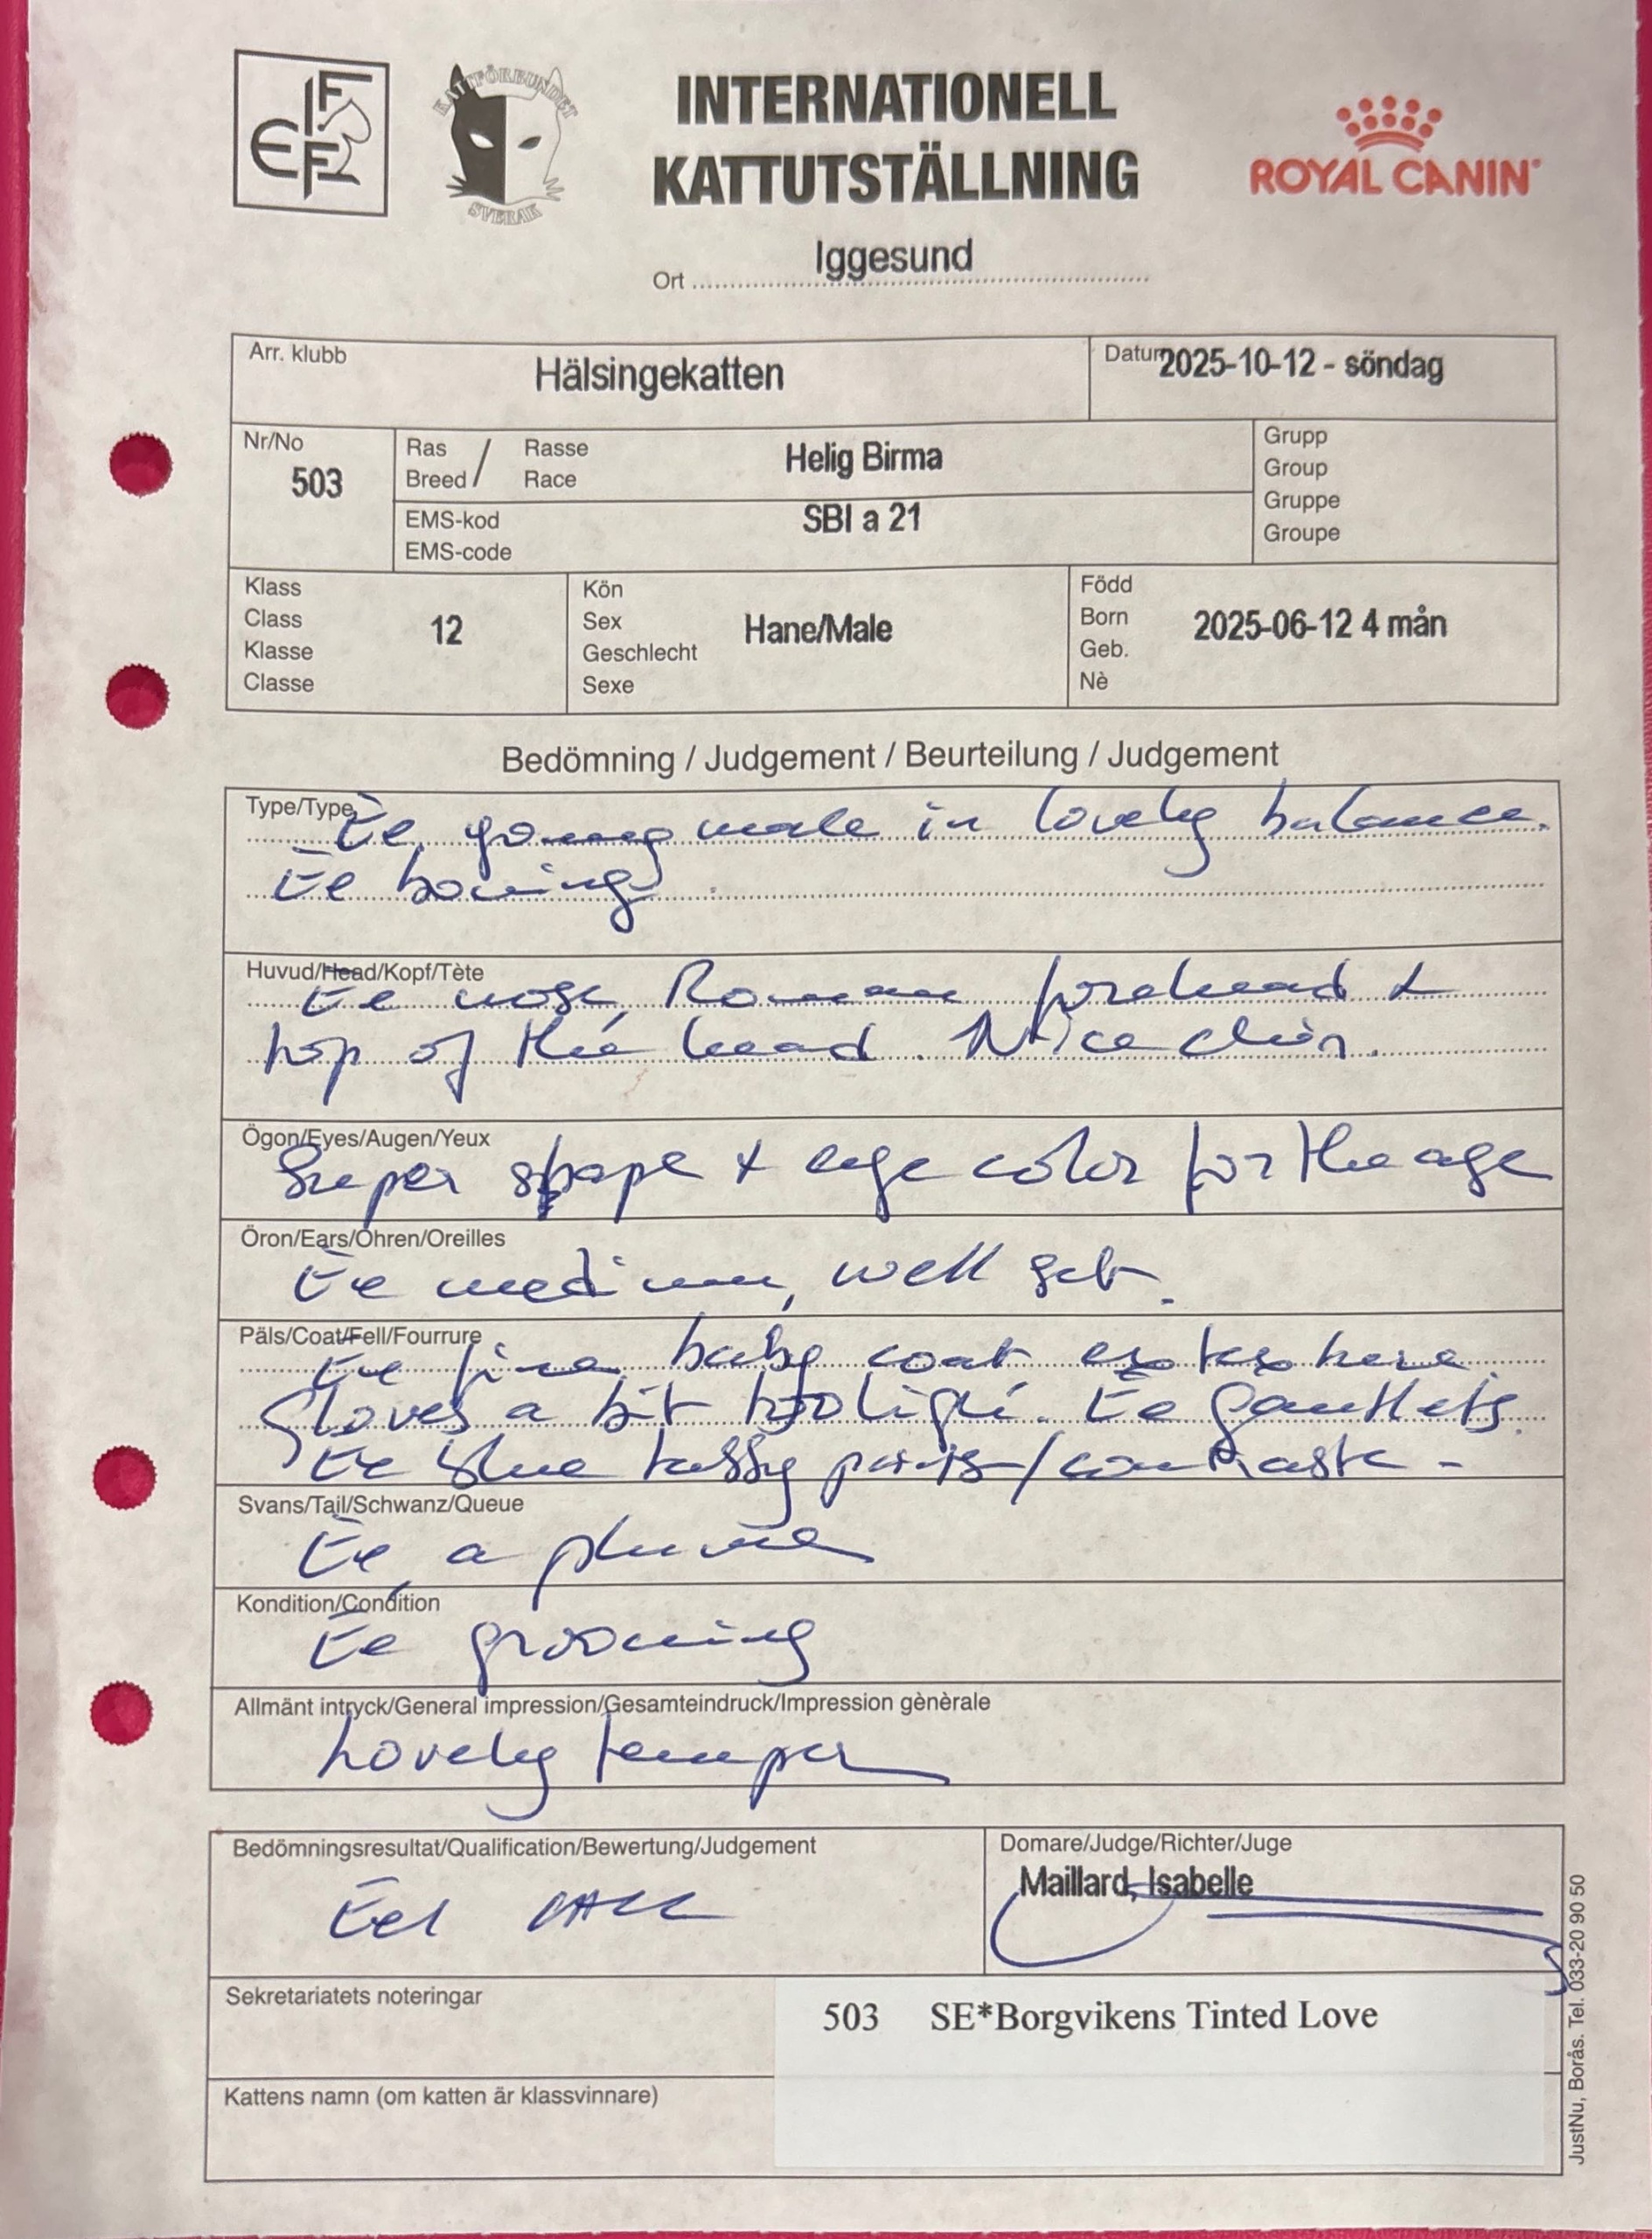 FIFE
KATTFÖRBUNDET
SVERAK
INTERNATIONELL
KATTUTSTÄLLNING
ROYAL CANIN
Ort Iggesund
Arr. klubb Hälsingekatten
Datum 2025-10-12 - söndag
Nr/No 503
Ras / Rasse
Breed / Race
Helig Birma
EMS-kod
EMS-code
SBI a 21
Grupp
Group
Gruppe
Groupe
Klass
Class
Klasse
Classe
12
Kön
Sex
Geschlecht
Sexe
Hane/Male
Född
Born
Geb.
Nè
2025-06-12 4 mån
Bedömning / Judgement / Beurteilung / Judgement
Type/Type
Ee, young male in lovely balance.
Ee boning
Huvud/Head/Kopf/Tète
Ee nose, Roman forehead &
top of the head. Nice chin.
Ögon/Eyes/Augen/Yeux
Super shape + eye color for the age
Öron/Ears/Ohren/Oreilles
Ee medium, well set.
Päls/Coat/Fell/Fourrure
Ee fine baby coat
Gloves a bit Ee gauntlets.
Ee blue tabby points/contraste -
Svans/Tail/Schwanz/Queue
Ee, a plume
Kondition/Condition
Ee grooming
Allmänt intryck/General impression/Gesamteindruck/Impression gènèrale
Lovely temper
Bedömningsresultat/Qualification/Bewertung/Judgement
Ex1
Domare/Judge/Richter/Juge
Maillard, Isabelle
Sekretariatets noteringar
503 SE*Borgvikens Tinted Love
Kattens namn (om katten är klassvinnare)
JustNu, Borås. Tel. 033-20 90 50